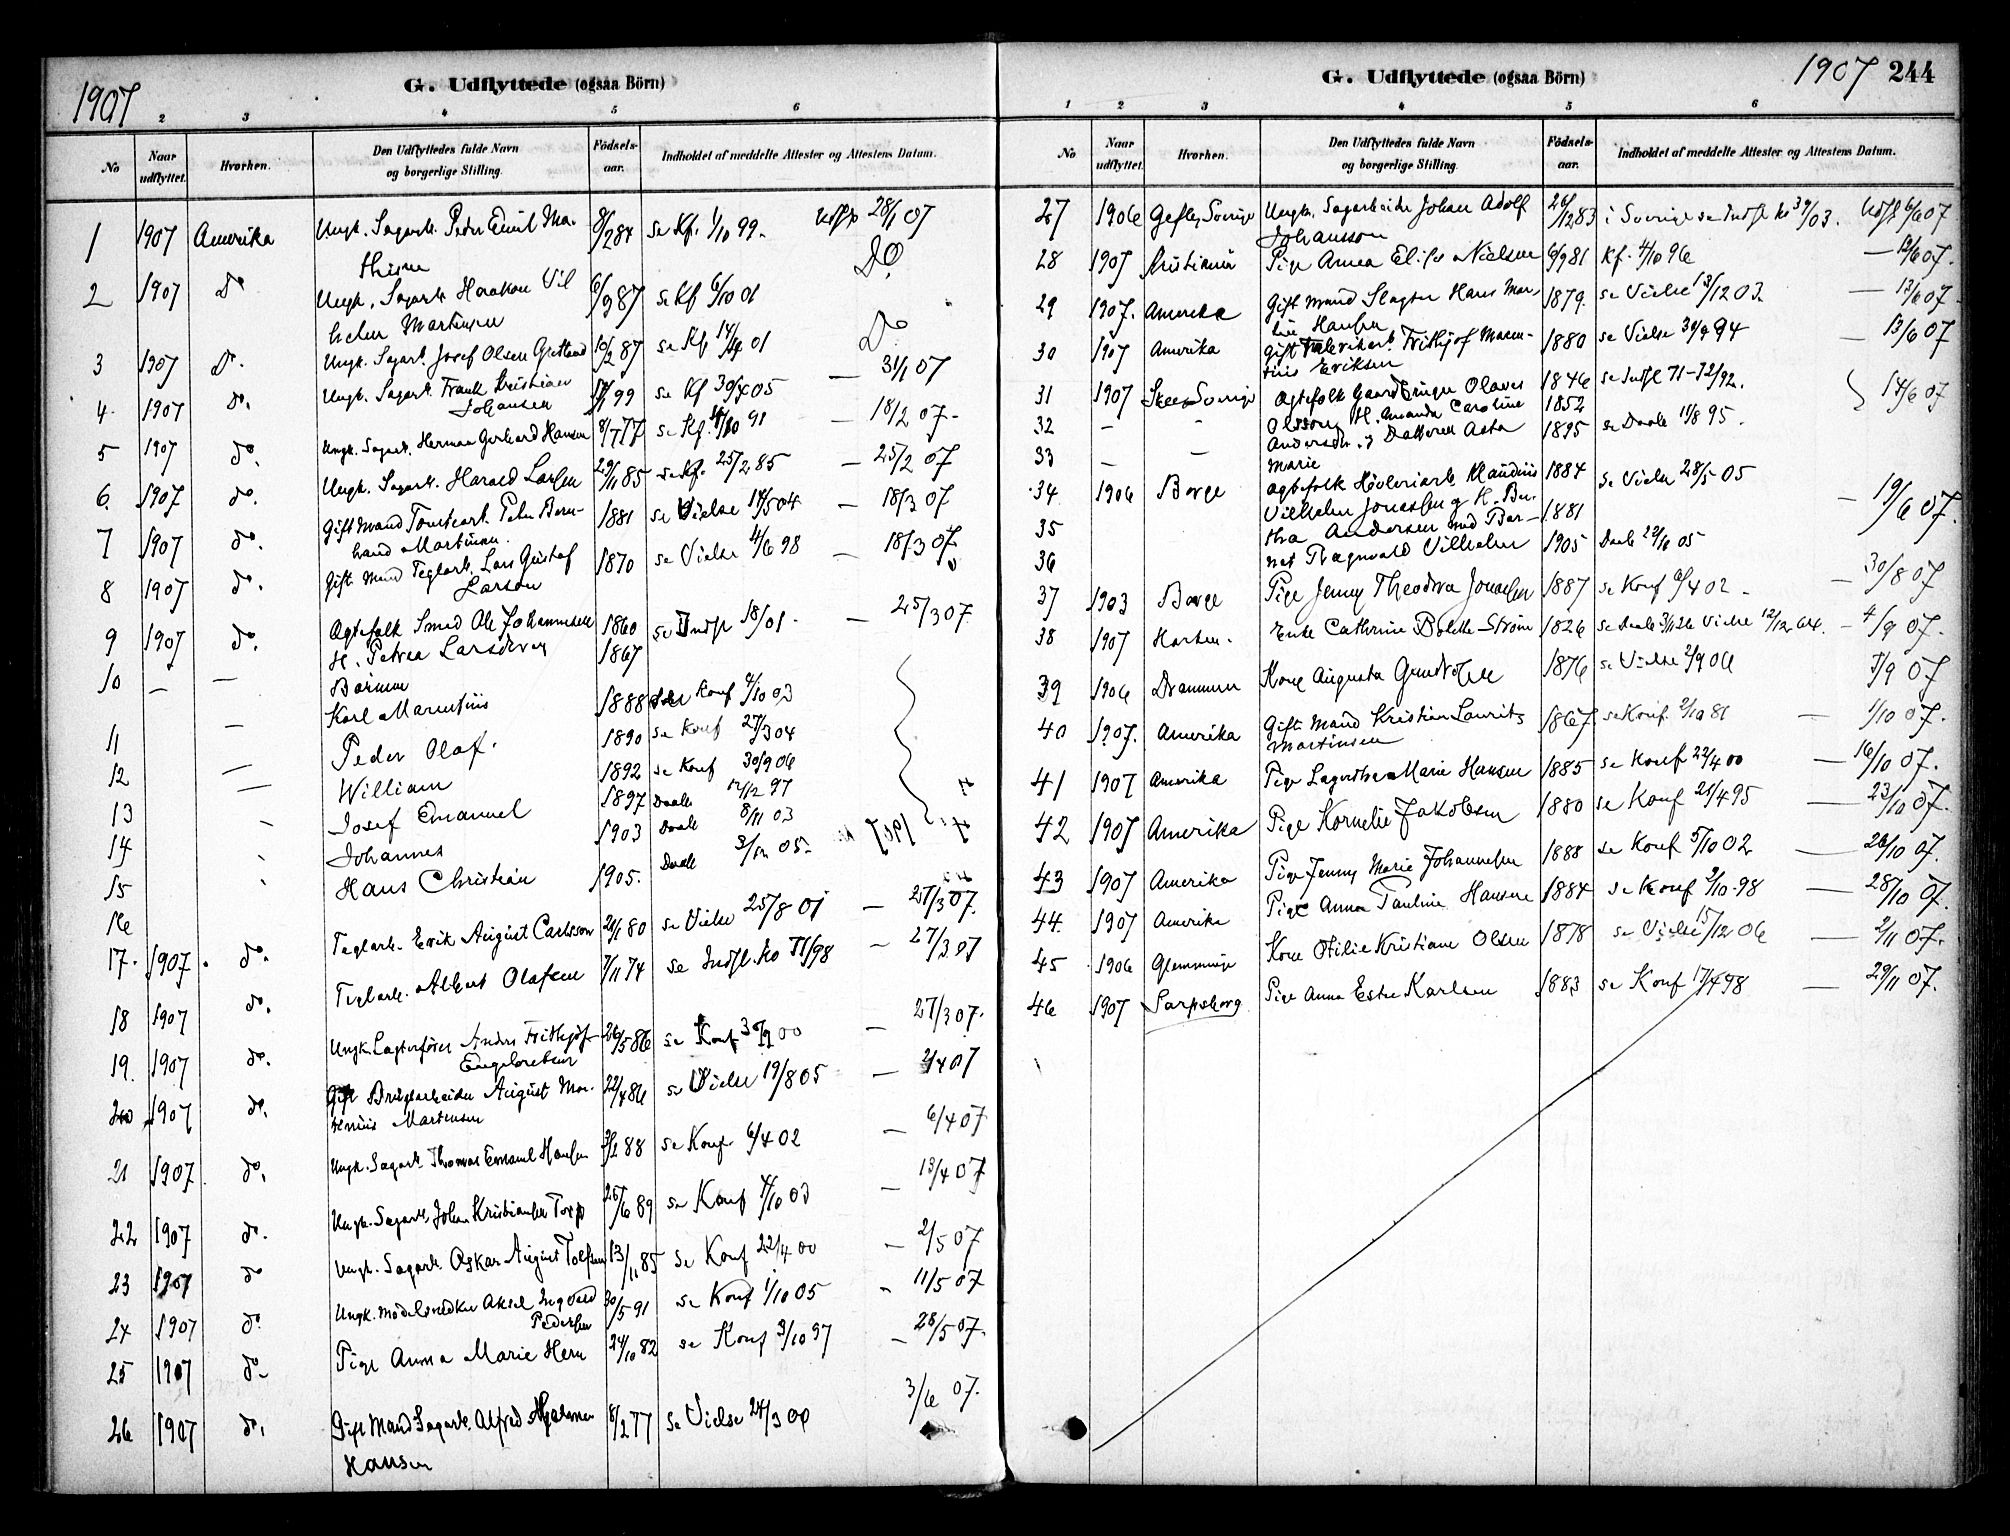 1907
G. Udflyttede (ogsaa Börn)
2 3 4 5 6
No Naar udflyttet. Hvorhen. Den Udflyttedes fulde Navn og borgerlige Stilling. Födsels-aar. Indholdet af meddelte Attester og Attestens Datum.
1 1907 Amerika Ungk. Sagarb. Peder Emil Ma- 8/2 84 se Kf. 1/10 99. 28/1 07
thisen
2 1907 Do Ungk. Sagarb. Haakon Vil 6/9 87 se Kf 6/10 01 Do
helm Martinsen
3 1907 Do. Ungk. Sagarb. Josef Olsen 10/2 87 se Kf 14/4 01 Do
4. 1907 do. Ungk. Sagarb. Frank Kristian se Kf 05 — 31/1 07
Johansen
5 1907 do. Ungk. Sagarb. Herman Gerhard Hansen 8/7 77 se Kf. 91 — 18/2 07
6. 1907 do. Ungk. Sagarb. Harald Larsen 29/11 85 se Kf. 25/2 85 — 25/2 07
7 1907 do. Gift Mand Tomtearb. Peter Bern- 1881 se Vielse 04 — 18/3 07
hard Martinsen.
8 1907 do. Gift Mand Teglarb. Lars Gustaf 1870 se Vielse 4/6 98 — 18/3 07
Larson
9 1907 do. Ægtefolk Smed Ole Johannesen 1860 se Indfl 18/01. — 25/3 07
10 — — H. Petrea Larsdren 1867
Börnene
11 — Karl Marentius 1888 Konf 4/10 03
12 — Peder Olaf. 1890 se Konf 27/3 04
13 — William 1892 se Konf 30/9 06
14 Josef Emanuel 1897 Daab 12/12 97
15 Johannes 1903 Daab 8/11 03
16 Hans Christian 1905. Daab 3/12 05
17. 1907. do. Teglarb. Erik August Carlsson 28/1 80 se Vielse 25/8 01 — 27/3 07.
18 1907 do. Teglarb. Albert Olafsen 7/11 74 se Indfl. No 71/98 — 27/3 07
19. 1907 do. Ungk. Lagterfører Anders Frithjof 26/5 86 se Konf 00 — 27/3 07.
Engebretsen
20 1907 do. Gift Brugsarbeider August Mar- 22/4 86 se Vielse 19/8 05 — 2/4 07
tinius Martinsen
21 1907. do. Ungk. Sagarb. Thomas Emanuel Hansen 88 se Konf. 6/4 02 — 6/4 07
22 1907 do. Ungk. Sagarb. Johan Kristiansen Torp 25/6 89 se Konf 4/10 03 — 13/4 07
23 1907 do Ungk. Sagarb. Oskar August Tolfsen 13/11 85 se Konf 22/4 00 — 2/5 07
24 1907 do. Ungk. Modelsnedker Aksel Ingvald 30/5 91 se Konf 1/10 05 — 11/5 07
Pedersen
25 1907 do. Pige Anna Marie Hern 24/10 82 se Konf 3/10 97 — 28/5 07.
26 1907 do. Gift Mand Sagarb. Alfred Hjalmar 8/2 77 se Vielse 24/3 00 3/6 07.
Hansen
1907 244
G. Udflyttede (ogsaa Börn)
1 2 3 4 5 6
No Naar udflyttet. Hvorhen. Den Udflyttedes fulde Navn og borgerlige Stilling. Födsels-aar. Indholdet af meddelte Attester og Attestens Datum.
27 1906 Gefle, Sverige Ungk. Sagarbeider Johan Adolf 26/12 83 i Sverige se Indfl No 39/03. Udfl 6/6 07
Johansson
28 1907 Kristiania Pige Anna Elise Nielsen 6/9 81 Kf. 4/10 96 — 12/6 07.
29 1907. Amerika Gift Mand Slagter Hans Mar- 1879. se Vielse 13/12 03 — 12/6 07
tin Hansen
30 1907 Amerika Gift Fabrikarb. Frithjof Maren- 1880 se Vielse 94 — 13/6 07
tius Eriksen
31 1907 Skee Sverige Ægtefolk Gaardbruger Olaves 1846 se Indfl 71-72/92. 14/6 07
32 — — Olsson, H. Amanda Caroline 1852
33 — — Anderson. & Datteren Asta 1895 se Daab 11/8 95.
Marie
34 1906 Borge Ægtefolk Høvleriarb. Klaudius 1884 se Vielse 28/5 05
35 Vilhelm Jonassen & H. Ber- 1881 — 19/6 07.
tha Andersen med Bar-
36 net Ragnvald Vilhelm 1905 Daab 05
37 1903 Borge Pige Jenny Theodora Jonassen 1887 se Konf 6/4 02 — 30/8 07
38 1907 Horten Enke Cathrine Bolette Strøm 1826 se Daab 3/11 26 Vielse 12/12 64. — 4/9 07.
39 1906 Drammen Kone Augusta 1876 se Vielse 2/9 06 7/9 07
40 1907. Amerika Gift Mand Kristian Laurits 1867 se Konf. 2/10 81 — 1/10 07.
Martinsen
41 1907 Amerika Pige Lagertha Marie Hansen 1885 se Konf 22/4 00 — 16/10 07.
42 1907 Amerika Pige Kornelie Jakobsen 1880 se Konf 21/4 95 — 23/10 07.
43 1907 Amerika Pige Jenny Marie Johannesen 1888 se Konf 5/10 02 — 26/10 07.
44. 1907 Amerika Pige Anna Pauline Hansen 1884 se Konf 2/10 98 — 28/10 07.
45 1906 Glemminge Kone Otilie Kristiane Olsen 1878 se Vielse 15/12 06 — 2/11 07.
46 1907 Sarpsborg Pige Anna Ester Karlsen 1883 se Konf 17/4 98 — 29/11 07.